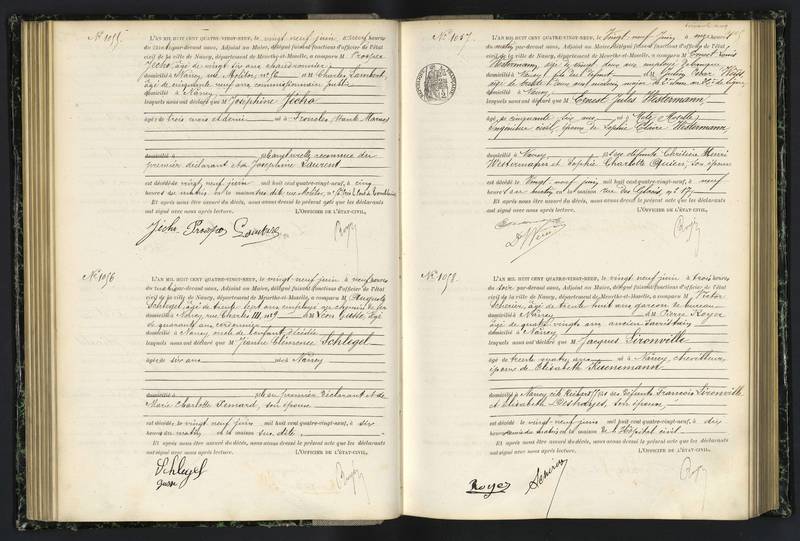 N° 1055.
L'AN MIL HUIT CENT QUATRE-VINGT-NEUF, le vingt neuf juin, à neuf heures
du matin par-devant nous, Adjoint au Maire, délégué faisant fonctions d'officier de l'état
civil de la ville de Nancy, département de Meurthe-et-Moselle, a comparu M Prosper
Jécho, âgé de vingt six ans, charbonnier,
domicilié à Nancy, rue Molitor, n° 56 et M Charles Lambert,
âgé de cinquante neuf ans, commissionnaire public
domicilié à Nancy,
lesquels nous ont déclaré que M Joséphine Jécho
âgée de trois mois et demi né à Froncles, Haute-Marne
domicilié à reconnue du
premier déclarant et de Joséphine Laurent
est décédé le vingt neuf juin mil huit cent quatre-vingt-neuf, à cinq
heures du matin en la maison dite rue Molitor, n°
Et après nous être assuré du décès, nous avons dressé le présent acte que les déclarants
ont signé avec nous après lecture. L'OFFICIER DE L'ÉTAT-CIVIL,
Jécho Prosper Lambert
N° 1056
L'AN MIL HUIT CENT QUATRE-VINGT-NEUF, le vingt neuf juin à neuf heures
du matin par-devant nous, Adjoint au Maire, délégué faisant fonctions d'officier de l'état
civil de la ville de Nancy, département de Meurthe-et-Moselle, a comparu M Auguste
Schlegel, âgé de trente sept ans employé au chemin de fer
domicilié à Nancy, rue Charles III, n° 9 et M Léon Gusse, âgé
de quarante ans cordonnier
domicilié à Nancy oncle de l'enfant décédée
lesquels nous ont déclaré que M Jeanne Clémence Schlegel
âgée de six ans née à Nancy
domicilié à fille du premier déclarant et de
Marie Charlotte Femard, son épouse
est décédé le vingt neuf juin mil huit cent quatre-vingt-neuf, à six
heures du matin en la maison sus dite,
Et après nous être assuré du décès, nous avons dressé le présent acte que les déclarants
ont signé avec nous après lecture. L'OFFICIER DE L'ÉTAT-CIVIL,
Schlegel
Gusse
N° 1057.
L'AN MIL HUIT CENT QUATRE-VINGT-NEUF, le Vingt neuf Juin à onze heures
du matin par-devant nous, Adjoint au Maire, délégué faisant fonctions d'officier de l'état
civil de la ville de Nancy, département de Meurthe-et-Moselle, a comparu M Ernest Louis
Westermann, âgé de vingt deux ans, employé de banque
domicilié à Nancy, fils du défunt et M Julien César
âgé de trente
domicilié à Nancy
lesquels nous ont déclaré que M Ernest Jules Westermann,
âgé de cinquante six ans né à Metz, Moselle,
Ingénieur civil, époux de Sophie Claire Westermann
domicilié à Nancy fils des défunts Chrétien Henri
Westermann et Sophie Charlotte son épouse
est décédé le Vingt neuf juin mil huit cent quatre-vingt-neuf, à neuf
heures du matin en la maison rue des Glacis, n° 17
Et après nous être assuré du décès, nous avons dressé le présent acte que les déclarants
ont signé avec nous après lecture. L'OFFICIER DE L'ÉTAT-CIVIL,
N° 1058.
L'AN MIL HUIT CENT QUATRE-VINGT-NEUF, le vingt neuf juin à trois heures
du soir par-devant nous, Adjoint au Maire, délégué faisant fonctions d'officier de l'état
civil de la ville de Nancy, département de Meurthe-et-Moselle, a comparu M Victor
âgé de trente huit ans garçon de bureau
domicilié à Nancy et M Pierre Royer
âgé de quatre vingts ans ancien sacristain
domicilié à Nancy
lesquels nous ont déclaré que M Jacques Sironville
âgé de trente quatre ans né à Nancy, chevilleur
époux de Elisabeth Fuenemann
domicilié à Nancy fils des défunts François Sironville
et Elisabeth Destranges, son épouse,
est décédé le vingt neuf juin mil huit cent quatre-vingt-neuf, à dix
heures du matin en la maison de l'Hôpital civil
Et après nous être assuré du décès, nous avons dressé le présent acte que les déclarants
ont signé avec nous après lecture. L'OFFICIER DE L'ÉTAT-CIVIL,
Royer